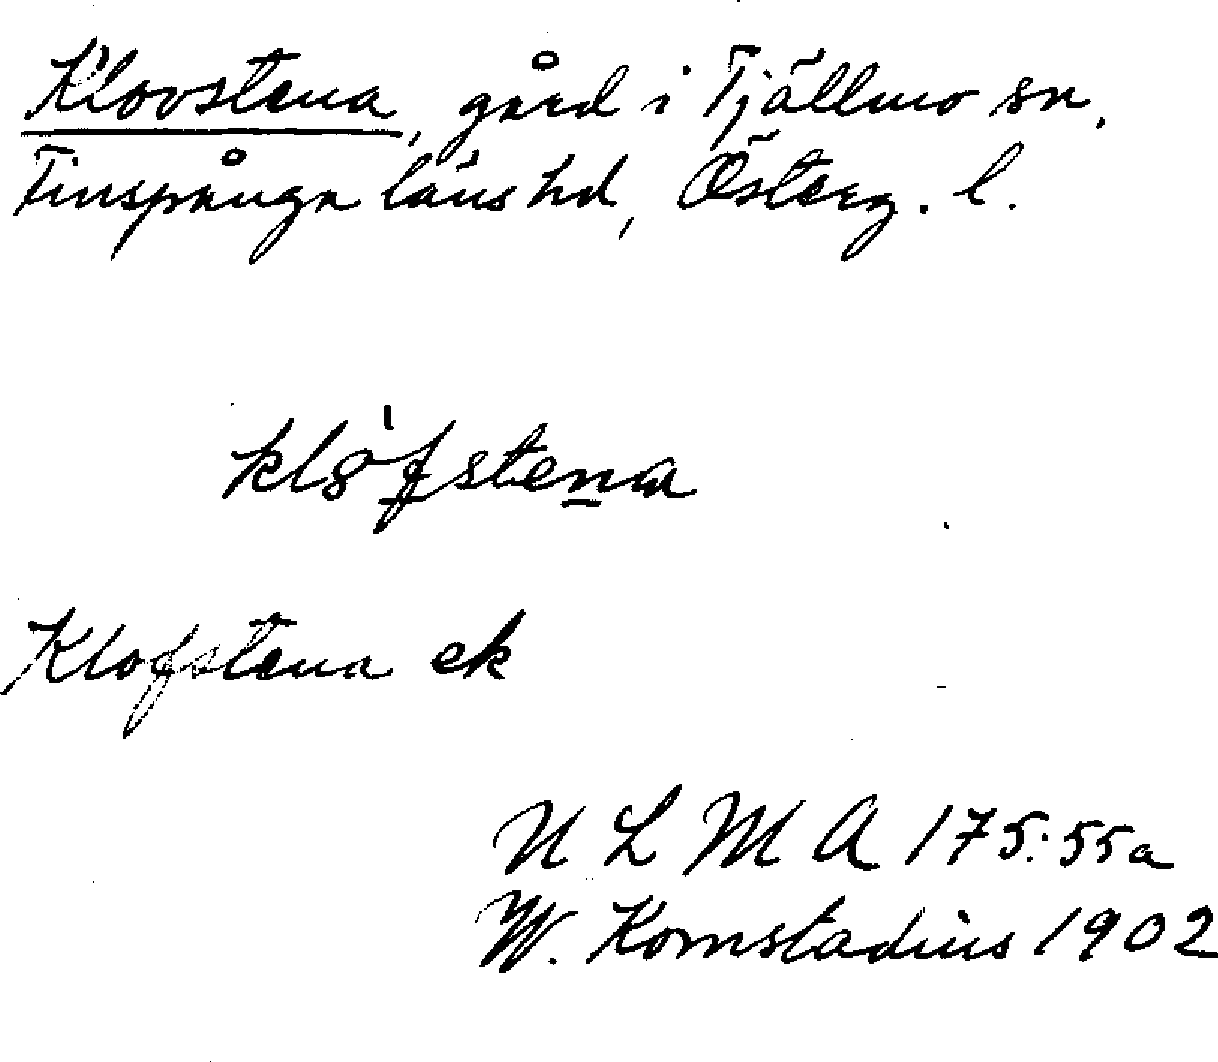 Klovstena, gård i Tjällmo sn,
Finspånga läns hd, Österg. l.
klȯfstena
Klofstena ek
U L M A 175:55a
W. Komstadius 1902